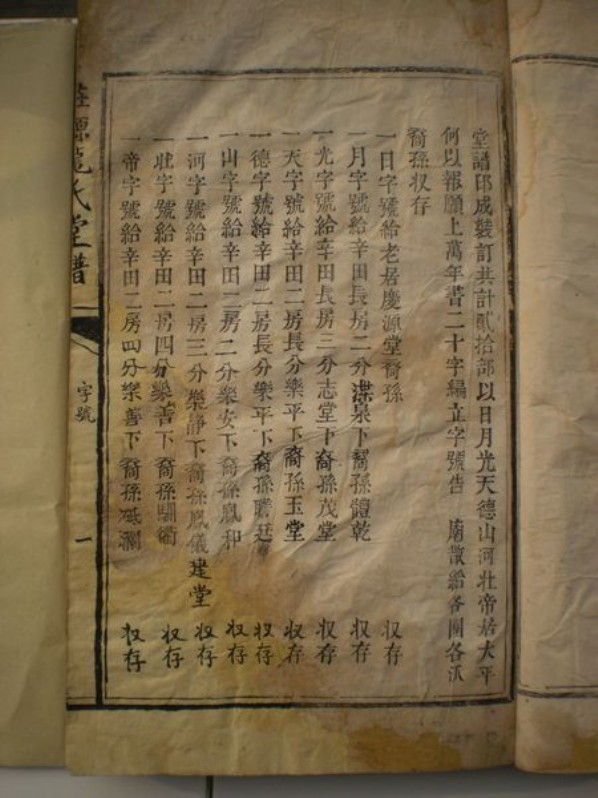 堂譜即成裝訂共計貳拾部以日月光天德山河壯帝居太平
何以報願上萬年書二十字編立字號告 廟散給各閈各派
裔孫収存
一日字號給老居慶源堂裔孫 収存
一月字號給辛田長房二分 泉下裔孫體乾 収存
一光字號給辛田長房三分志堂下裔孫茂堂 収存
一天字號給辛田二房長分樂平下裔孫玉堂 収存
一德字號給辛田二房長分樂平下裔孫 廷 収存
一山字號給辛田二房二分樂安下裔孫鳳和 収存
一河字號給辛田二房三分樂靜下裔孫鳳儀建堂 収存
一壯字號給辛田二房四分樂善下裔孫 収存
一帝字號給辛田二房四分樂善下裔孫 収存
氏堂譜
字號
一